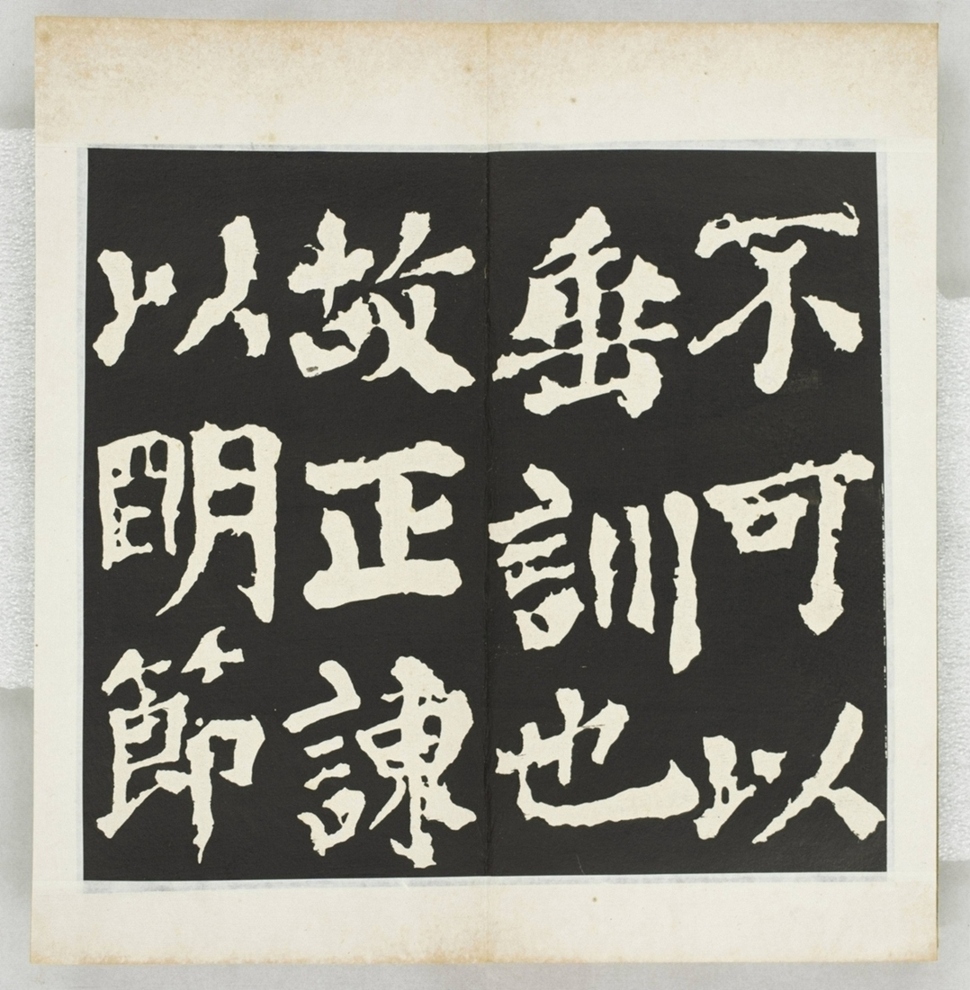 不可以
垂訓也
故正諫
以明節